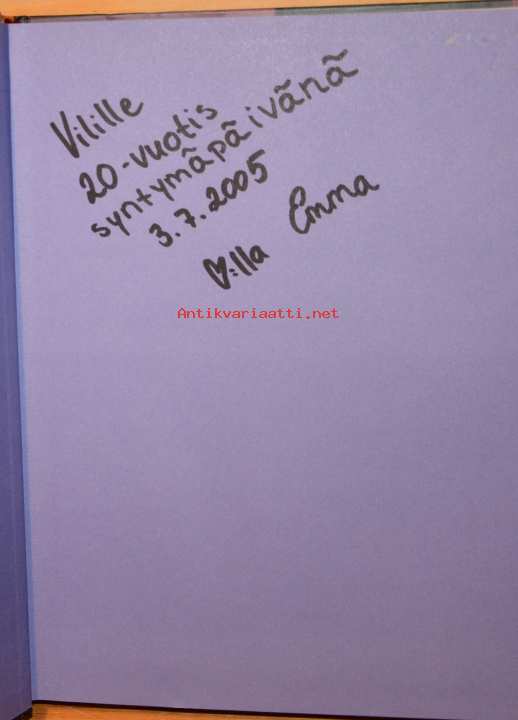 Vilille
20-vuotis
syntymäpäivänä
3.7.2005
♥:lla Emma
Antikvariaatti.net